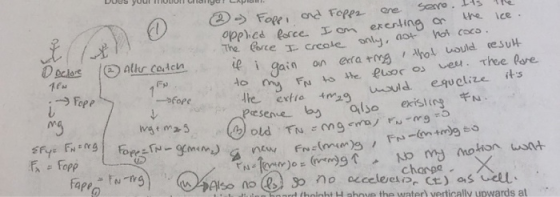 Does your motion change? Explain.
①
② → Fapp1 and Fapp2 are same. Its the
applied force I am exerting on the ice.
The force I create only, not hot coco.
if i gain an extra +mg, that would result
to my FN to the floor as well. There fore
the extra +m2g would equalize its
presense by also existing FN.
① Before
↑FN
→ Fapp
↓
mg
ΣFy = FN = mg
Fx = Fapp
Fapp① = FN - mg
② After catch
↑FN
→ Fapp
↓
mg + m2g
Fapp = FN - g(m+m2)
③ old FN = mg = ma, FN - mg = 0
new FN = (m+m)g, FN - (m+m)g = 0
FN = ↑(m+m)a = (m+m)g↑
No my motion wont
change.
④ Also no so no acceleration, (t) as well.
(height H above the water) vertically upwards at